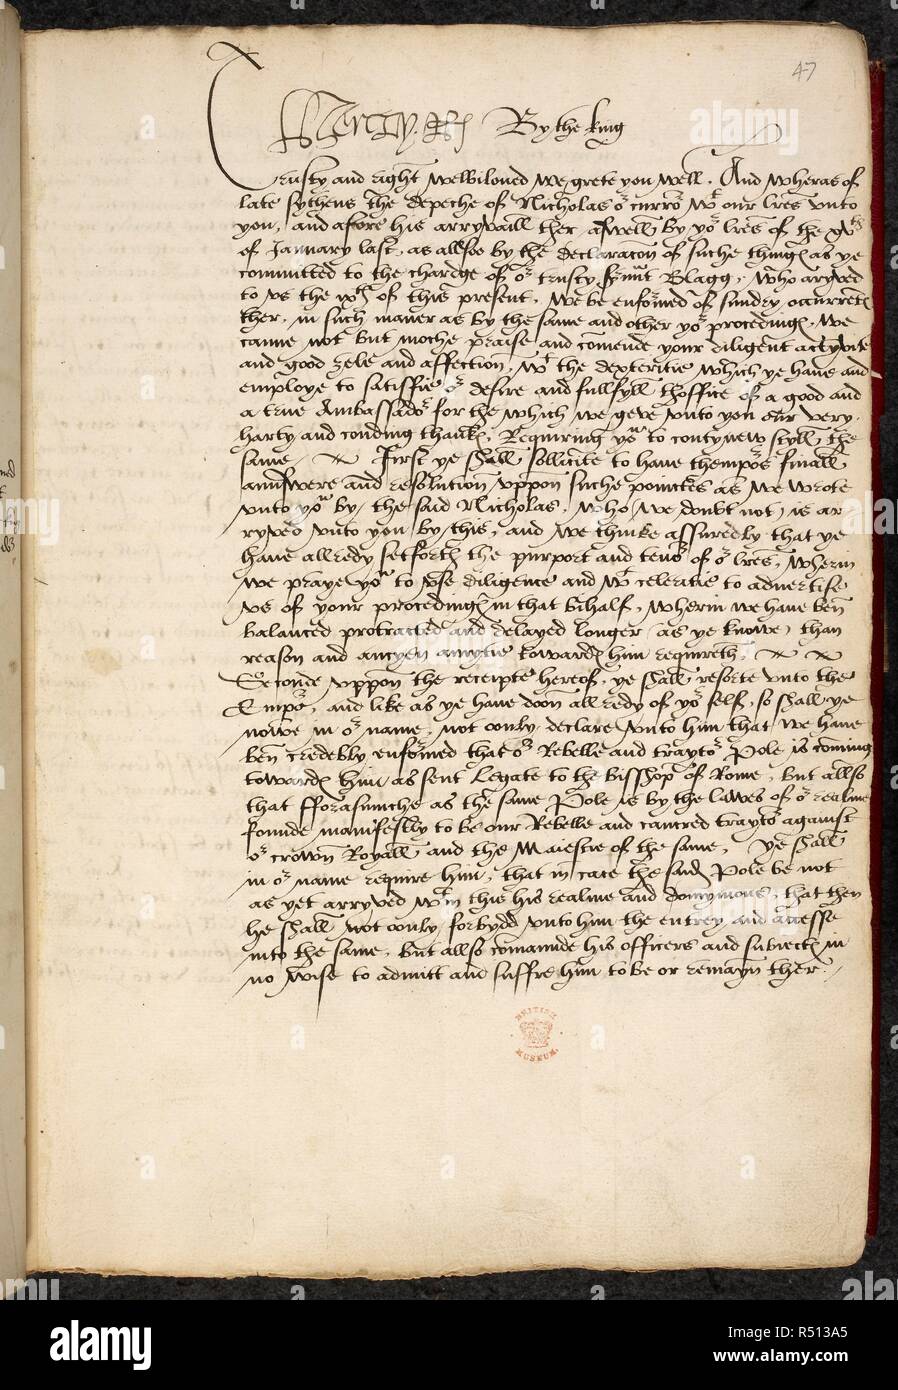 47
Henry R By the king
Trusty and right welbiloued we grete you well. And wheras of
late sythens the depeche of Nicholas oʳ curroʳ wᵗ our lres vnto
you, and afore his arryvaill ther aswell by yoʳ lres of the xvᵗʰ
of January last, as allso by the declaracon of suche things as ye
committed to the chardge of oʳ trusty sʳunt Blagg, who aryved
to vs the of this present, We be enformed of sundry occurrents
ther, in such maner as by the same and other yoʳ procedings, We
canne not but moche praise and comende your diligent actyvite
and good zele and affection, wᵗ the dexteritie which ye haue and
employe to satisffie oʳ desire and fullfyll thoffice of a good and
a true Ambassadoʳ for the which we geve vnto you our very
harty and conding thanks, Requiring yoᵘ to contynew styll the
same. First ye shall sollicite to haue thempoʳs finall
annswere and resolution vppon suche pointes as we wrote
vnto yoᵘ by the said Nicholas, who (we doubt not) is ar
ryved vnto you by this, and we thinke assuredly that ye
haue allredy setforth the purport and tenoʳ of oʳ lres, wherin
we praye yoᵘ to vse diligence and wᵗ celeritie to aduertise
vs of your procedings in that behalf, wherin we haue ben
balanced protracted and delayed longer (as ye knowe) than
reason and auncyen amytie towards him requireth.
Seconde vppon the receipte hereof, ye shall resorte vnto the
Empoʳ, and like as ye haue doon allredy of yoʳ self, so shall ye
nowe in oʳ name, not oonly declare vnto him that we haue
ben credebly enformed that oʳ Rebelle and traytoʳ Pole is coming
towards him as sent Legate to the bisshop of Rome, but allso
that fforasmuche as the same Pole is by the lawes of oʳ realme
founde manifestly to be our Rebelle and cancred traytoʳ against
oʳ crown Royall and the Maiestie of the same, Ye shall
in oʳ name require him, that in cace the said Pole be not
as yet arryved wᵗin this his realme and domynions, that then
he shall not oonly forbydd vnto him the entrey and accesse
into the same, but allso comaunde his officers and subiects in
no wise to admitt and suffre him to be or remayn ther.
BRITISH MUSEUM
alamy
a
alamy
R513A5
www.alamy.com